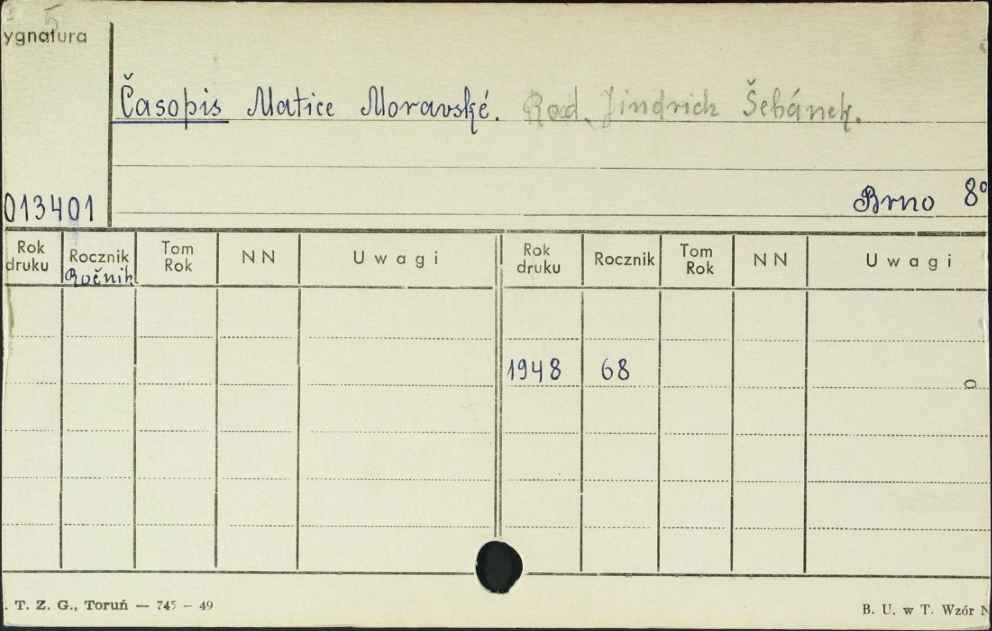 5
ygnatura
Časopis Matice Moravské. Red. Jindrich Šebánek.
013401
Brno 8°
Rok druku Rocznik Ročnik Tom Rok NN Uwagi Rok druku Rocznik Tom Rok NN Uwagi
1948 68
. T. Z. G., Toruń — 745 — 49
B. U. w T. Wzór N